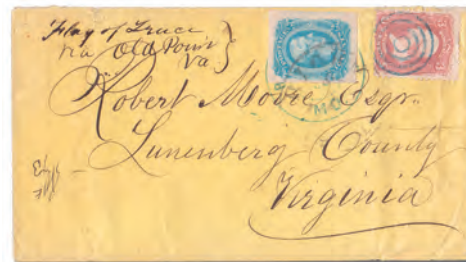 Flag of Truce
via Old Point
Va
Robert Moore Esqr.
Lunenberg County
Virginia